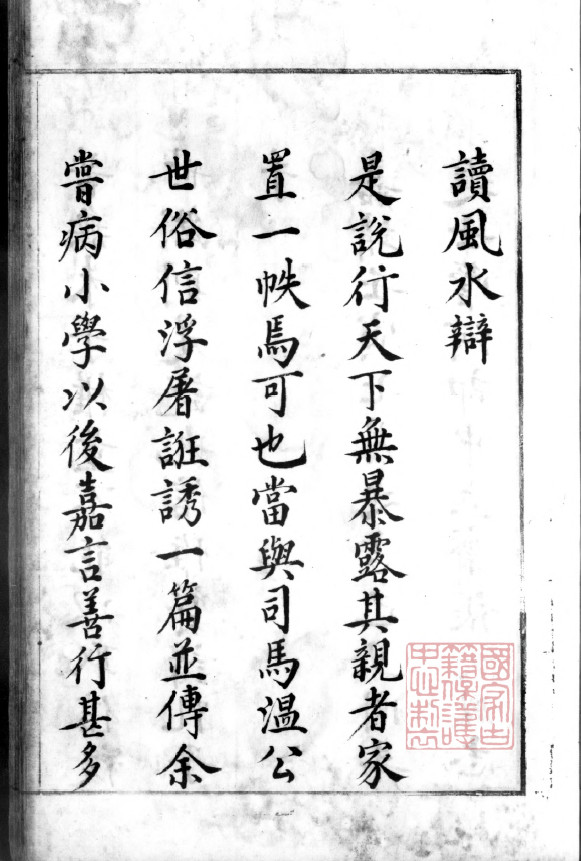 讀風水辯
是說行天下無暴露其親者家
置一帙焉可也當與司馬溫公
世俗信浮屠誑誘一篇並傳余
嘗病小學以後嘉言善行甚多
國家古
籍保護
中心制